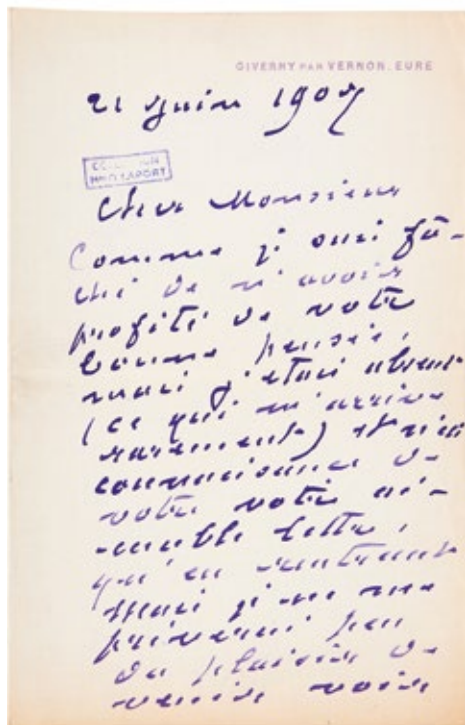 GIVERNY PAR VERNON. EURE
21 Juin 1907
LAPORT
Cher Monsieur
Comme je suis fâ-
ché de n'avoir
profité de votre
bonne pensée,
mais j'étais absent
(ce qui m'arrive
rarement) et n'ai
connaissance de
votre votre ai-
-mable lettre,
qu'en rentrant
mais je ne me
priverai pas
du plaisir de
venir voir